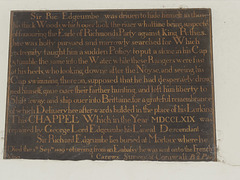 Sir Ric. Edgcumbe was driven to hide himself in those
thick Woods which over look the river who being suspected
of favouring the Earl of Richmonds Party against King R. the
was hotly pursued and narrowly searched for Which
extremity taught him a sudden Policy to put a stone in his Cap
& tumble the same into the Water while these Rangers were fast
at his heels who looking down after the Noyse and seeing his
Cap swimming there on supposed that he had desperately drown
himself gave over their farther hunting and left him liberty to
Shift away and ship over into Brittaine for a grateful remembrance
of which Delivery he afterwards builded in the place of his Lurking
This CHAPPEL Which in the Year MDCCLXIX was
repaired by George Lord Edgcumbe his Lineal Descendant
Sir Richard Edgcumbe lies buried at Morlaix where he
died the 8th Sepr 1489 returning from an Embassy he was sent unto the French
Carews Survey of Cornwall